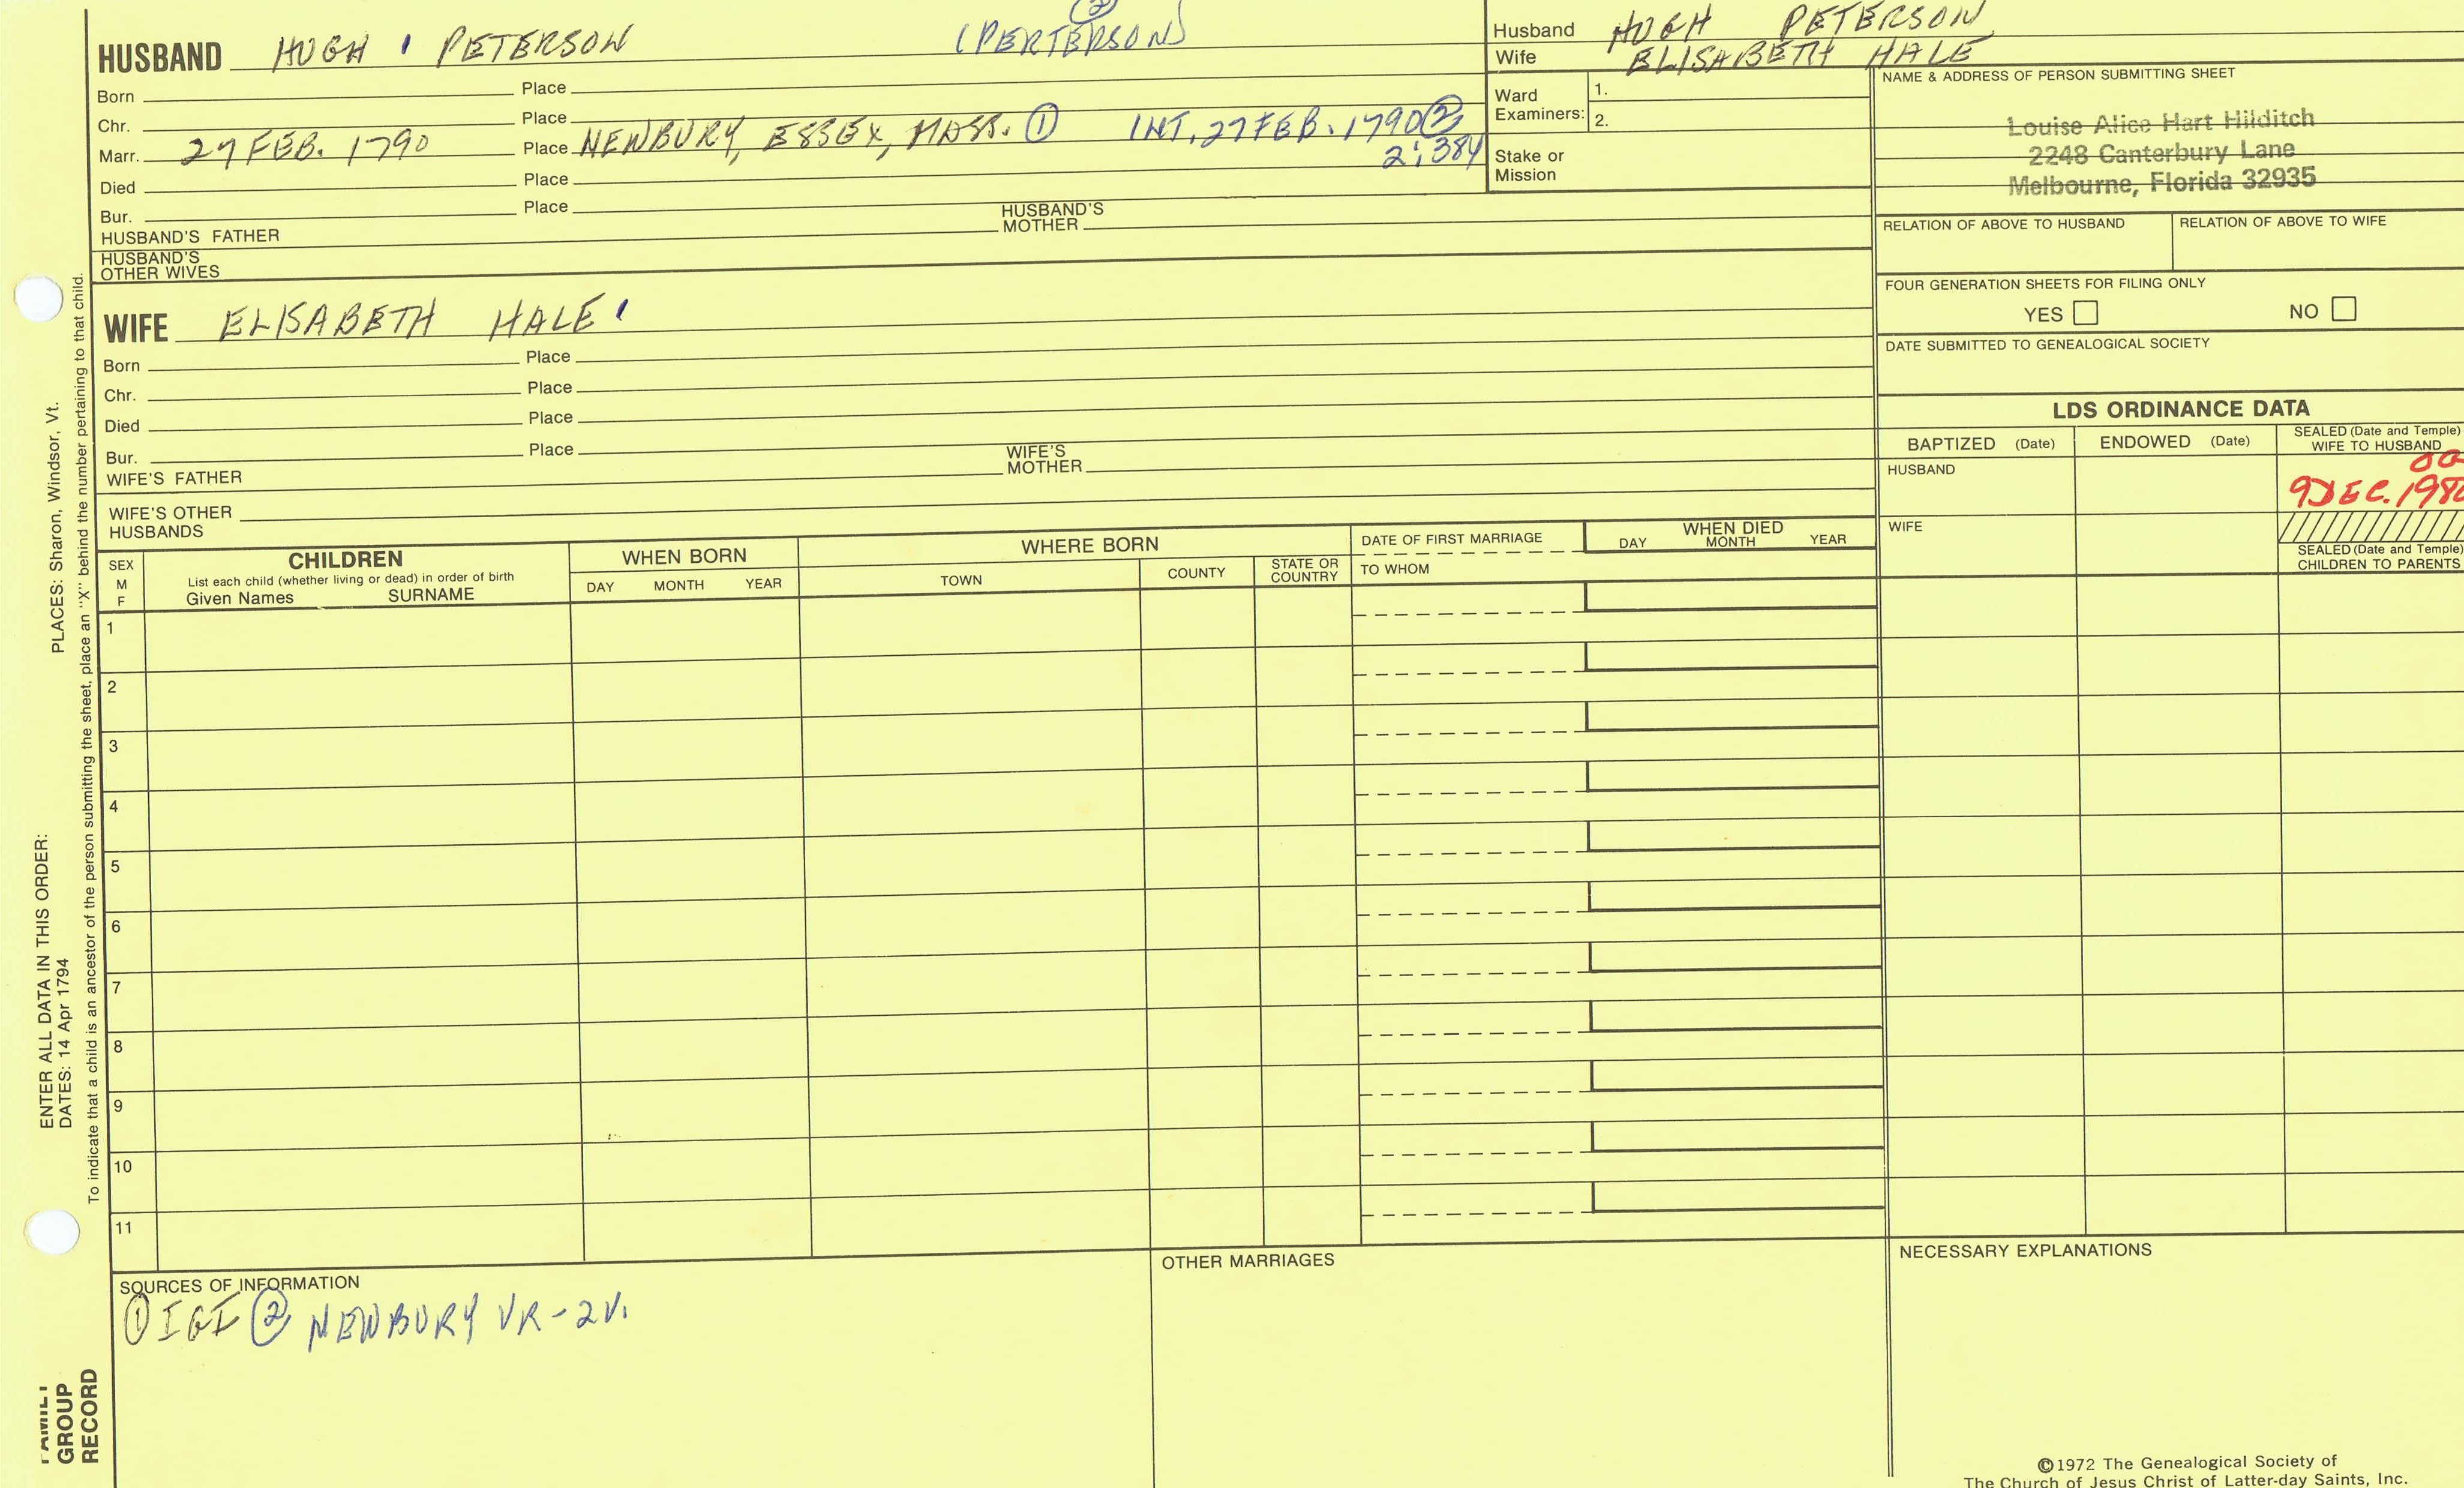 HUSBAND HUGH ' PETERSON (PERTERSON) ②
Born Place
Chr. Place
Marr. 27 FEB. 1790 Place NEWBURY, ESSEX, MASS. ① INT. 27 FEB. 1790 ②
2:384
Died Place
Bur. Place
HUSBAND'S FATHER HUSBAND'S MOTHER
HUSBAND'S OTHER WIVES
WIFE ELISABETH HALE '
Born Place
Chr. Place
Died Place
Bur. Place
WIFE'S FATHER WIFE'S MOTHER
WIFE'S OTHER HUSBANDS
Husband HUGH PETERSON
Wife ELISABETH HALE
Ward Examiners: 1.
2.
Stake or Mission
NAME & ADDRESS OF PERSON SUBMITTING SHEET
Louise Alice Hart Hilditch
2248 Canterbury Lane
Melbourne, Florida 32935
RELATION OF ABOVE TO HUSBAND RELATION OF ABOVE TO WIFE
FOUR GENERATION SHEETS FOR FILING ONLY
YES NO
DATE SUBMITTED TO GENEALOGICAL SOCIETY
LDS ORDINANCE DATA
BAPTIZED (Date) ENDOWED (Date) SEALED (Date and Temple) WIFE TO HUSBAND
HUSBAND
9 DEC.
WIFE
SEALED (Date and Temple) CHILDREN TO PARENTS
SEX M F
CHILDREN
List each child (whether living or dead) in order of birth
Given Names SURNAME
WHEN BORN
DAY MONTH YEAR
WHERE BORN
TOWN COUNTY STATE OR COUNTRY
DATE OF FIRST MARRIAGE
TO WHOM
WHEN DIED
DAY MONTH YEAR
1
2
3
4
5
6
7
8
9
10
11
SOURCES OF INFORMATION
① IGI ② NEWBURY VR-2V.
OTHER MARRIAGES
NECESSARY EXPLANATIONS
©1972 The Genealogical Society of
The Church of Jesus Christ of Latter-day Saints, Inc.
ENTER ALL DATA IN THIS ORDER:
DATES: 14 Apr 1794
PLACES: Sharon, Windsor, Vt.
To indicate that a child is an ancestor of the person submitting the sheet, place an "X" behind the number pertaining to that child.
FAMILY
GROUP
RECORD